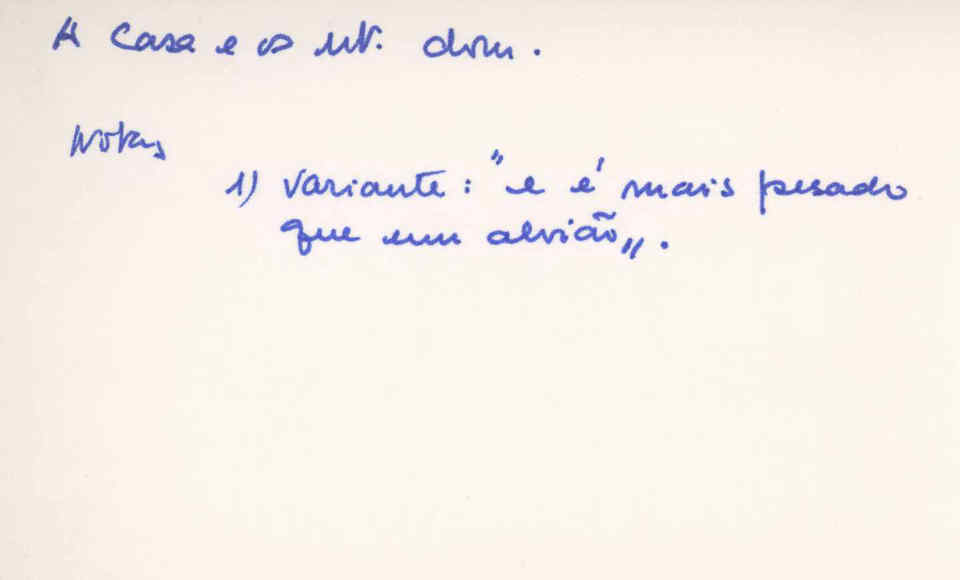 A Casa e os ut. dom.
Notas
1) variante: "e é mais pesado
que um alvião".